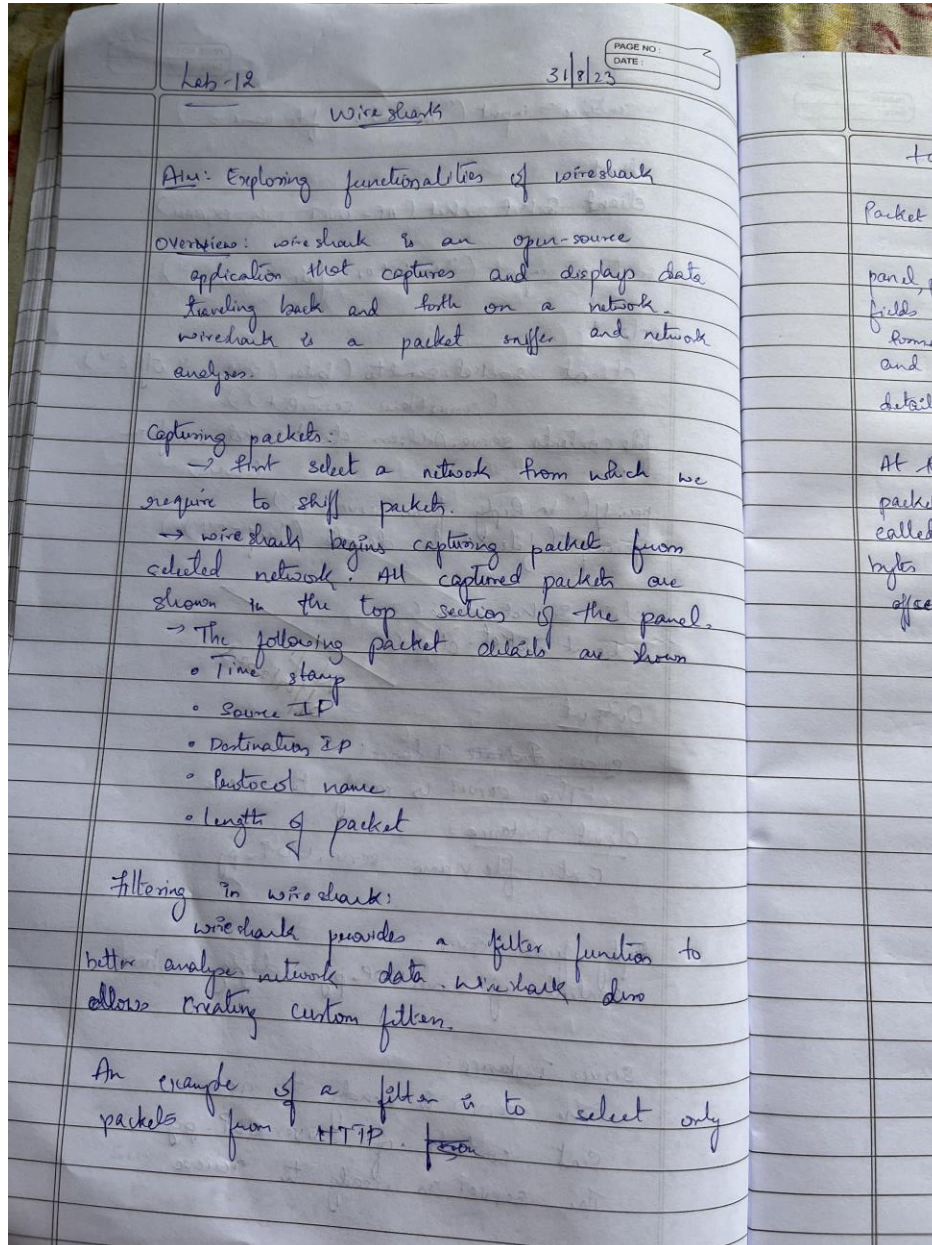 PAGE NO :
DATE :
Lab-12 31/8/23
Wireshark
Aim: Exploring functionalities of wireshark
Overview: wireshark is an open-source
application that captures and displays data
traveling back and forth on a network.
wireshark is a packet sniffer and network
analyses.
Capturing packets:
→ first select a network from which we
require to shiff packets.
→ wireshark begins capturing packet from
selected network. All captured packets are
shown in the top section of the panel.
→ The following packet details are shown
• Time stamp
• Source IP
• Destination IP
• Protocol name
• length of packet
filtering in wireshark:
wireshark provides a filter function to
better analyse network data. wireshark also
allows creating custom filters.
An example of a filter is to select only
packets from HTTP.
to
Packet
panel,
fields
and
detail
At
packe
called
bytes
offse